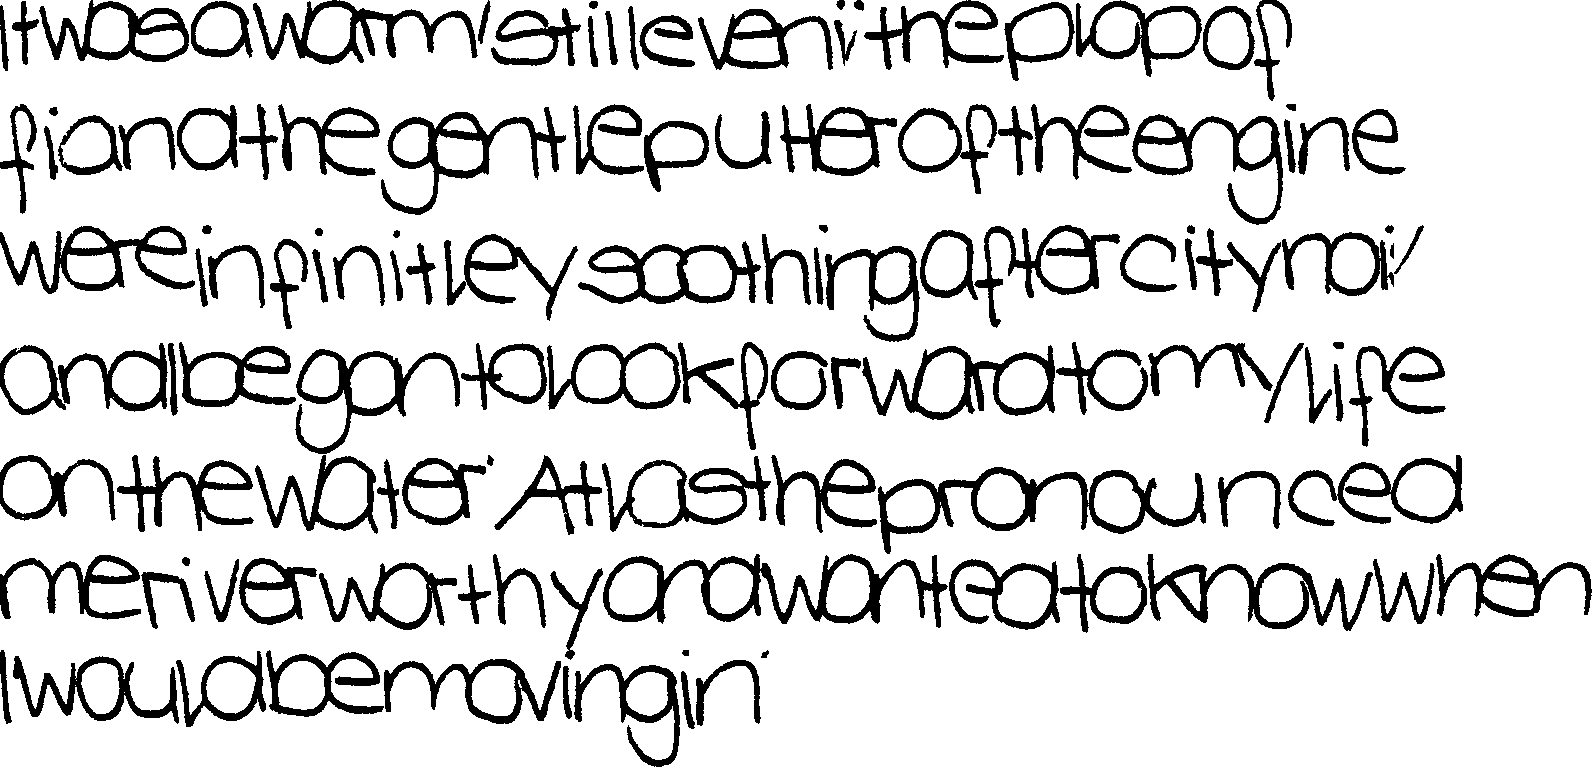 It was a warm, still eveni; the plop of
fi and the gentle putter of the engine
were infinitley soothing after city noi,
and I began to look forward to my life
on the water. At last he pronounced
me riverworthy and wanted to know when
I would be moving in.